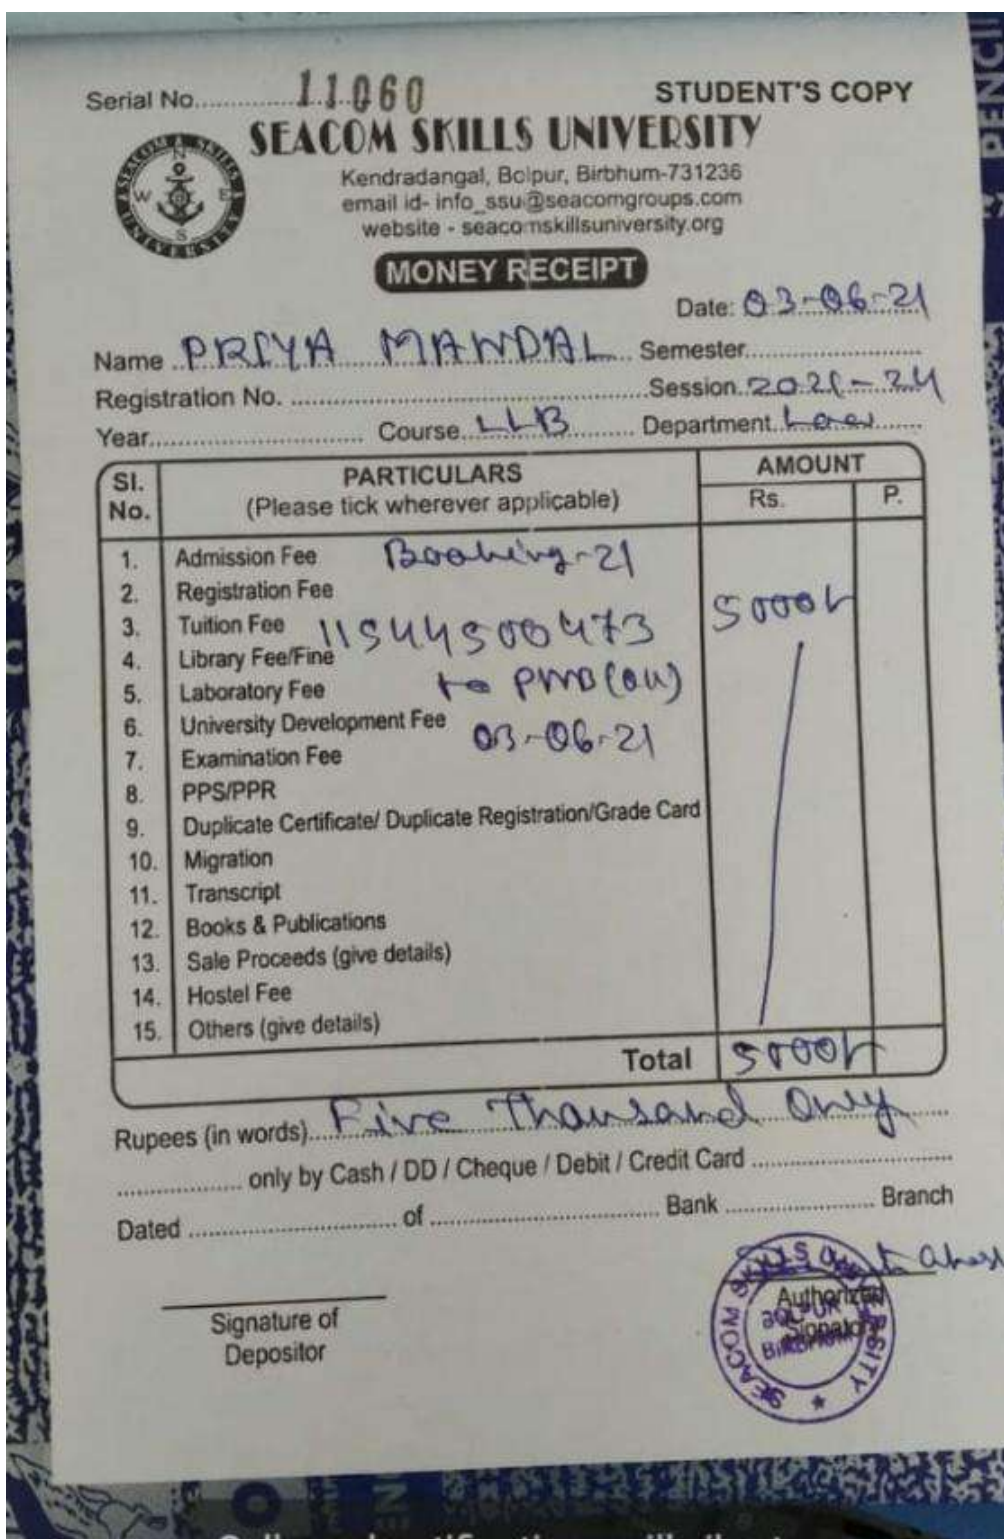 Serial No............. 11060
STUDENT'S COPY
SEACOM SKILLS UNIVERSITY
SEACOM SKILLS UNIVERSITY
N
W E
S
Kendradangal, Bolpur, Birbhum-731236
email id- info_ssu@seacomgroups.com
website - seacomskillsuniversity.org
MONEY RECEIPT
Date: 03-06-21
Name PRIYA MANDAL Semester
Registration No. Session 2021-24
Year Course LLB Department Law
Sl. No. PARTICULARS (Please tick wherever applicable) AMOUNT
Rs. P.
1. Admission Fee Booking-21
2. Registration Fee 5000/-
3. Tuition Fee 11544500473
4. Library Fee/Fine
5. Laboratory Fee to PNB(
6. University Development Fee 03-06-21
7. Examination Fee
8. PPS/PPR
9. Duplicate Certificate/ Duplicate Registration/Grade Card
10. Migration
11. Transcript
12. Books & Publications
13. Sale Proceeds (give details)
14. Hostel Fee
15. Others (give details)
Total 5000/-
Rupees (in words) Five Thousand Only
only by Cash / DD / Cheque / Debit / Credit Card
Dated of Bank Branch
Signature of
Depositor
Authorized
Signatory
SEACOM SKILLS UNIVERSITY
BOLPUR
BIRBHUM
PENCIL